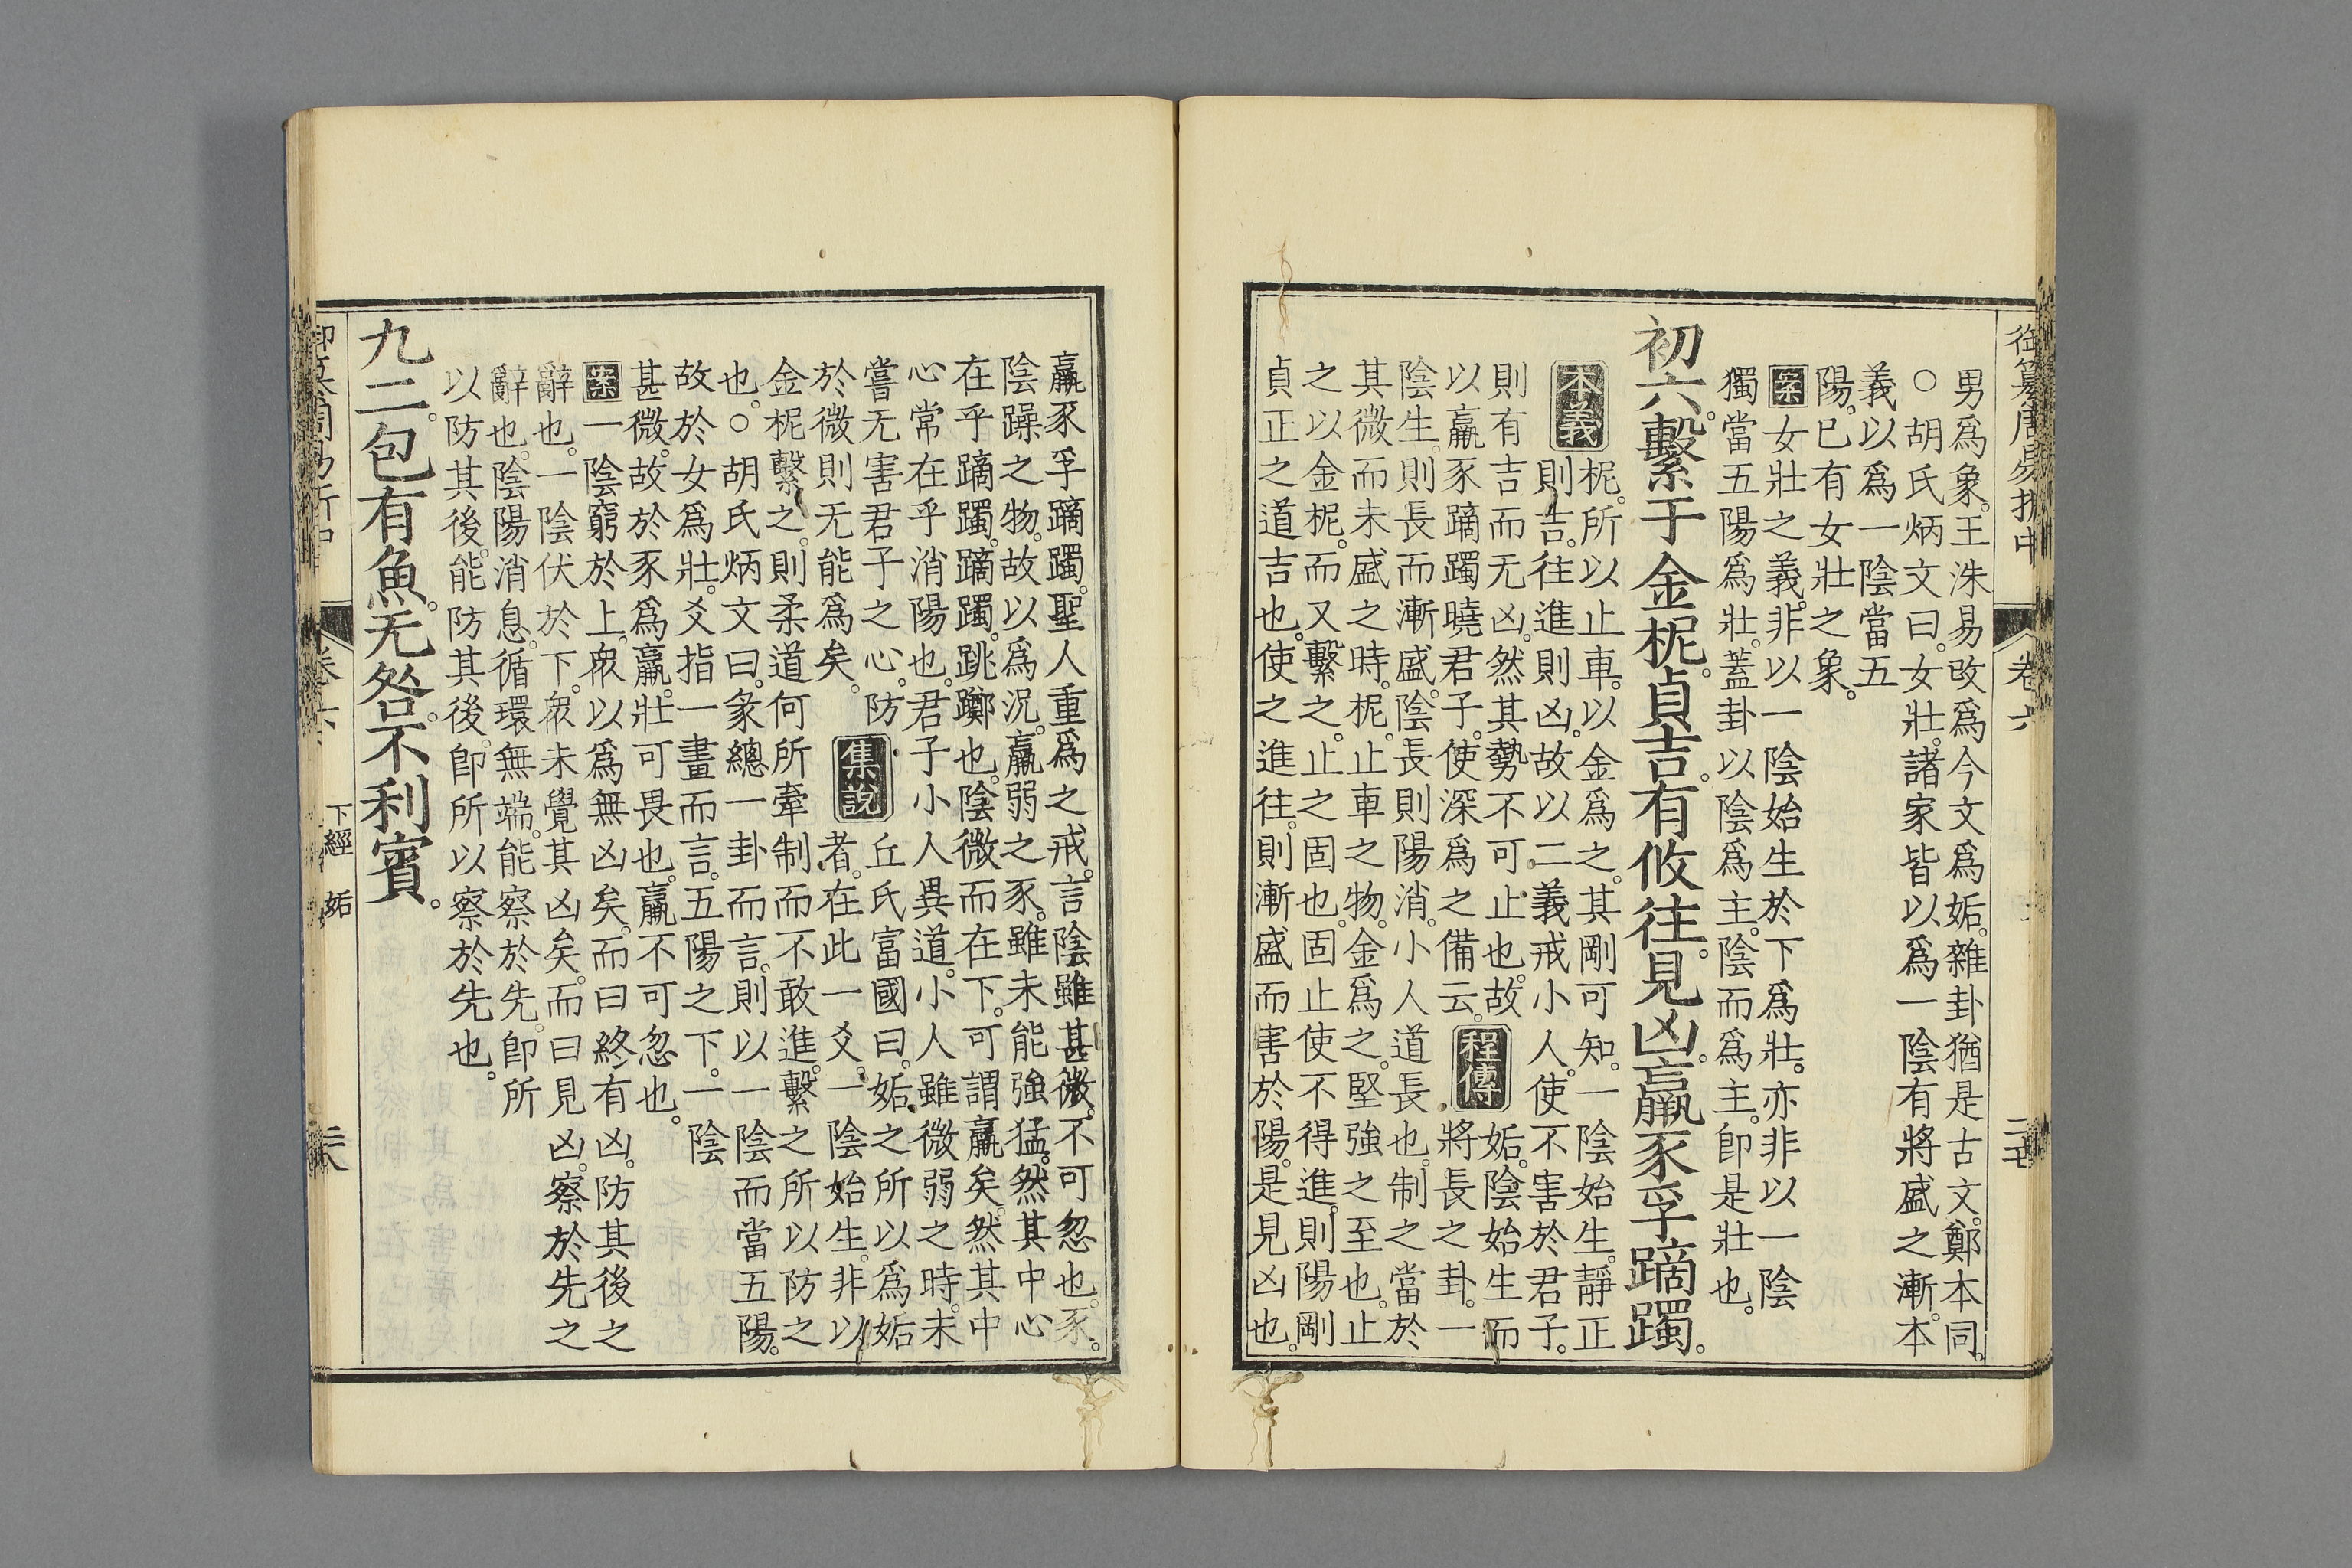 御纂周易折中 卷六 二七
男爲象。王洙易改爲今文爲姤。雜卦猶是古文。鄭本同。
○胡氏炳文曰。女壯。諸家皆以爲一陰有將盛之漸。本
義以爲一陰當五
陽。已有女壯之象。
案女壯之義。非以一陰始生於下爲壯。亦非以一陰
獨當五陽爲壯。蓋卦以陰爲主。陰而爲主。卽是壯也。
初六。繫于金柅。貞吉。有攸往。見凶。羸豕孚蹢躅。
本義
柅。所以止車。以金爲之。其剛可知。一陰始生。靜正
則吉。往進則凶。故以二義戒小人。使不害於君子。
則有吉而无凶。然其勢不可止也。故
以羸豕蹢躅曉君子。使深爲之備云。
程傳
姤。陰始生而
將長之卦。一
陰生。則長而漸盛。陰長則陽消。小人道長也。制之當於
其微而未盛之時。柅。止車之物。金爲之。堅強之至也。止
之以金柅。而又繫之。止之固也。固止使不得進。則陽剛
貞正之道吉也。使之進往。則漸盛而害於陽。是見凶也。
羸豕孚蹢躅。聖人重爲之戒。言陰雖甚微。不可忽也。豕。
陰躁之物。故以爲況。羸弱之豕。雖未能強猛。然其中心
在乎蹢躅。蹢躅。跳躑也。陰微而在下。可謂羸矣。然其中
心常在乎消陽也。君子小人異道。小人雖微弱之時。未
嘗无害君子之心。防
於微則无能爲矣。
集說
丘氏富國曰。姤之所以爲姤
者。在此一爻。一陰始生。非以
金柅繫之。則柔道何所牽制而不敢進。繫之所以防之
也。○胡氏炳文曰。彖總一卦而言。則以一陰而當五陽。
故於女爲壯。爻指一畫而言。五陽之下。一陰
甚微。故於豕爲羸。壯可畏也。羸不可忽也。
案一陰窮於上。衆以爲無凶矣。而曰終有凶。防其後之
辭也。一陰伏於下。衆未覺其凶矣。而曰見凶。察於先之
辭也。陰陽消息。循環無端。能察於先。卽所
以防其後。能防其後。卽所以察於先也。
九二。包有魚。无咎。不利賓。
御纂周易折中 卷六 下經 姤 二八